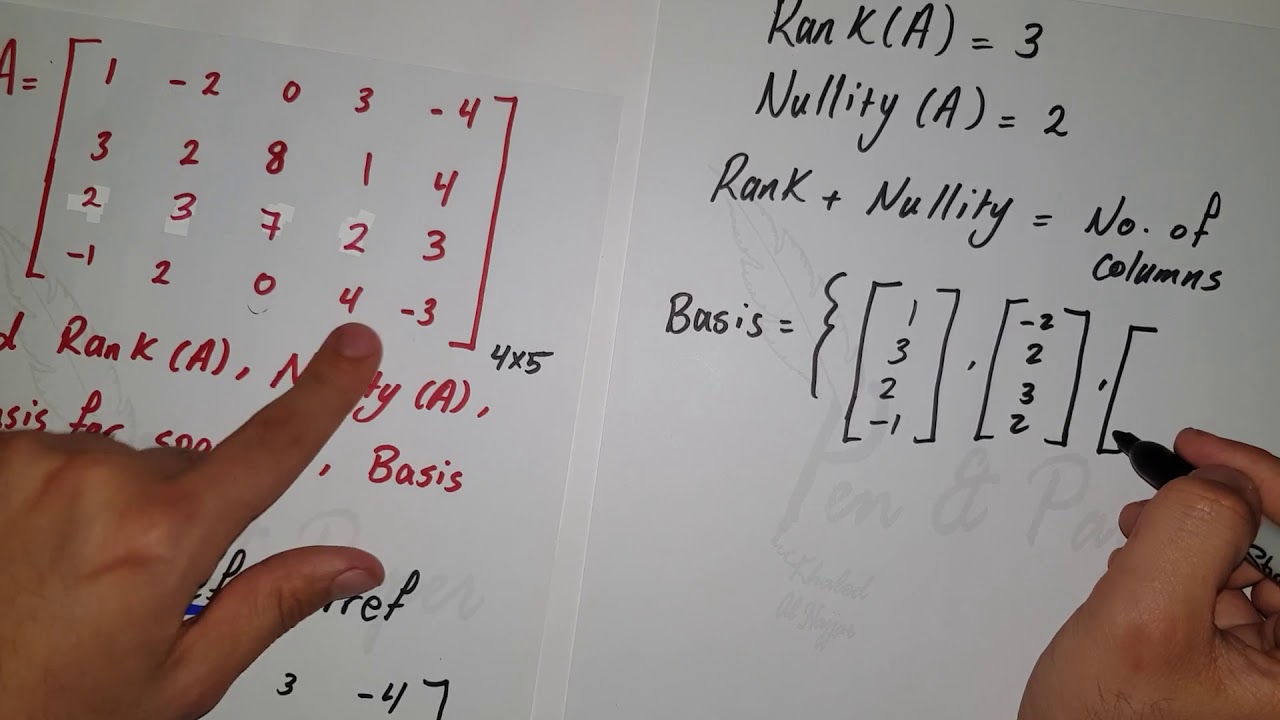 A = 1 -2 0 3 -4
3 2 8 1 4
2 3 7 2 3
-1 2 0 4 -3
4×5
Rank (A),
(A),
, Basis
rref
3 -4
Rank(A) = 3
Nullity (A) = 2
Rank + Nullity = No. of
columns
Basis = { [1 3 2 -1] , [-2 2 3 2] , [
Pen & Pa
Khaled
Al Najjar